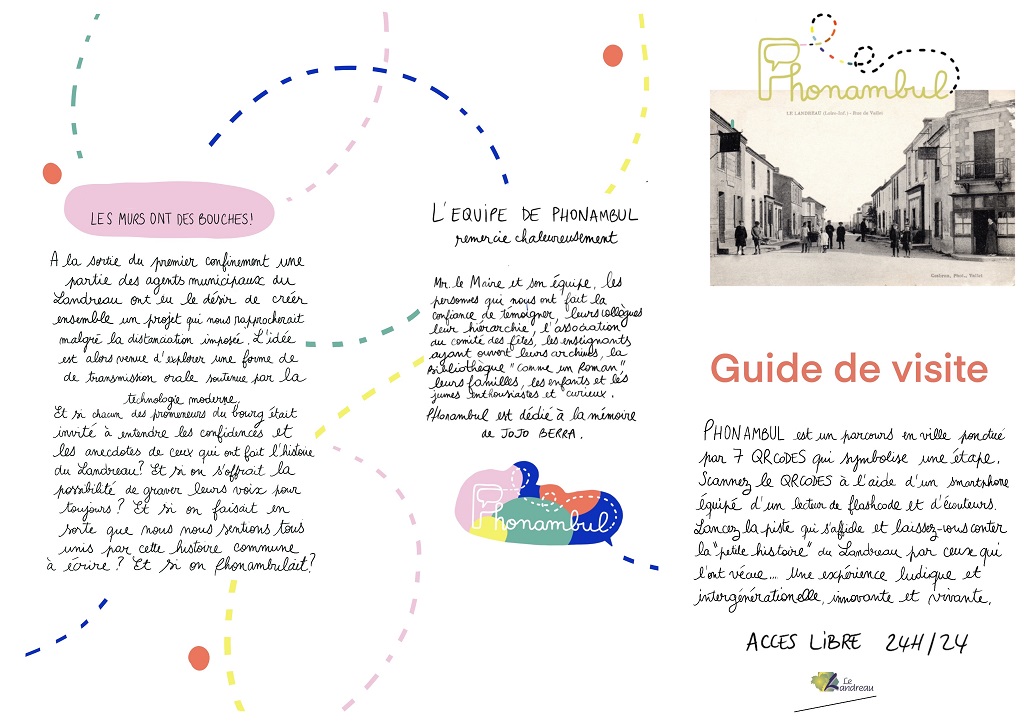 LES MURS ONT DES BOUCHES!
A la sortie du premier confinement une
partie des agents municipaux du
Landreau ont eu le désir de créer
ensemble un projet qui nous rapprocherait
malgré la distanciation imposée. L'idée
est alors venue d'explorer une forme de
de transmission orale soutenue par la
technologie moderne.
Et si chacun des promeneurs du bourg était
invité à entendre les confidences et
les anecdotes de ceux qui ont fait l'histoire
du Landreau? Et si on s'offrait la
possibilité de graver leurs voix pour
toujours? Et si on faisait en
sorte que nous nous sentions tous
unis par cette histoire commune
à écrire? Et si on Phonambulait?
L'EQUIPE DE PHONAMBUL
remercie chaleureusement
Mr. le Maire et son équipe, les
personnes qui nous ont fait la
confiance de témoigner, leurs collègues
leur hiérarchie, l'association
du comité des fêtes, les enseignants
ayant ouvert leurs archives, la
Bibliothèque "comme un Roman",
leurs familles, les enfants et les
jeunes enthousiastes et curieux.
Phonambul est dédié à la mémoire
de JOJO BERRA.
Phonambul
Phonambul
LE LANDREAU (Loire-Inf.) - Rue de Vallet
Guide de visite
PHONAMBUL est un parcours en ville ponctué
par 7 QRCODES qui symbolise une étape.
Scannez le QRCODES à l'aide d'un smartphone
équipé d'un lecteur de flashcode et d'écouteurs.
Lancez la piste qui s'affiche et laissez-vous conter
la "petite histoire" du Landreau par ceux qui
l'ont vécue... Une expérience ludique et
intergénérationelle, innovante et vivante.
ACCES LIBRE 24H/24
Le
Landreau